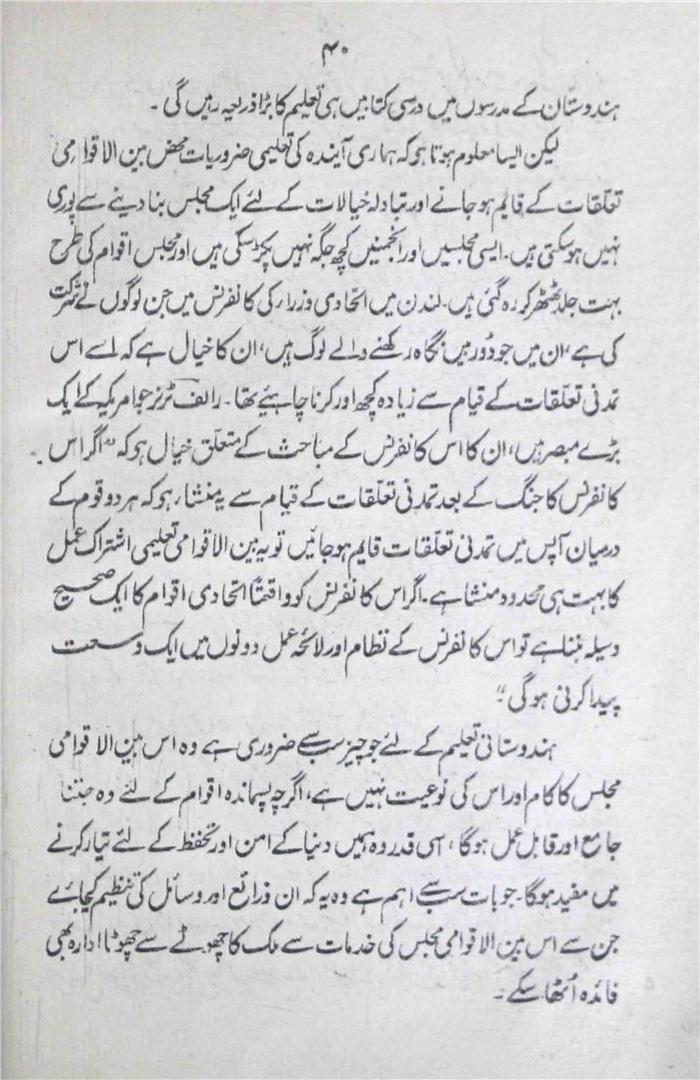 ۴۰
ہندوستان کے مدرسوں میں درسی کتابیں ہی تعلیم کا بڑا ذریعہ رہیں گی ۔
لیکن ایسا معلوم ہوتا ہو کہ ہماری آیندہ کی تعلیمی ضروریات محض بین الاقوامی
تعلّقات کے قایم ہو جانے اور تبادلہ خیالات کے لئے ایک مجلس بنا دینے سے پوری
نہیں ہو سکتی ہیں۔ ایسی مجلسیں اور انجمنیں کچھ جگہ نہیں پکڑ سکی ہیں اور مجلس اقوام کی طرح
بہت جلد ٹھٹھر کر رہ گئی ہیں۔ لندن میں اتحادی وزراء کی کانفرنس میں جن لوگوں نے شرکت
کی ہے، ان میں جو دور میں نگاہ رکھنے والے لوگ ہیں، ان کا خیال ہے کہ اسے اس
تمدنی تعلّقات کے قیام سے زیادہ کچھ اور کرنا چاہیئے تھا۔ رالف ٹرنر جو امریکہ کے ایک
بڑے مبصر ہیں، ان کا اس کانفرنس کے مباحث کے متعلّق خیال ہو کہ "اگر اس
کانفرنس کا جنگ کے بعد تمدنی تعلّقات کے قیام سے یہ منشار ہو کہ ہر دو قوم کے
درمیان آپس میں تمدنی تعلّقات قایم ہو جائیں تو یہ بین الاقوامی تعلیمی اشتراک عمل
کا بہت ہی محدود منشا ہے۔ اگر اس کانفرنس کو واقعتاً اتحادی اقوام کا ایک صحیح
وسیلہ بننا ہے تو اس کانفرنس کے نظام اور لائحہ عمل دونوں میں ایک وسعت
پیدا کرنی ہو گی"
ہندوستانی تعلیم کے لئے جو چیز سب سے ضروری ہے وہ اس بین الاقوامی
مجلس کا کام اور اس کی نوعیت نہیں ہے، اگرچہ پسماندہ اقوام کے لئے وہ جتنا
جامع اور قابل عمل ہوگا، اسی قدر وہ ہمیں دنیا کے امن اور تحفظ کے لئے تیار کرنے
میں مفید ہوگا۔ جو بات سب سے اہم ہے وہ یہ کہ ان ذرائع اور وسائل کی تنظیم کیجائے
جن سے اس بین الاقوامی مجلس کی خدمات سے ملک کا چھوٹے سے چھوٹا ادارہ بھی
فائدہ اُٹھا سکے ۔